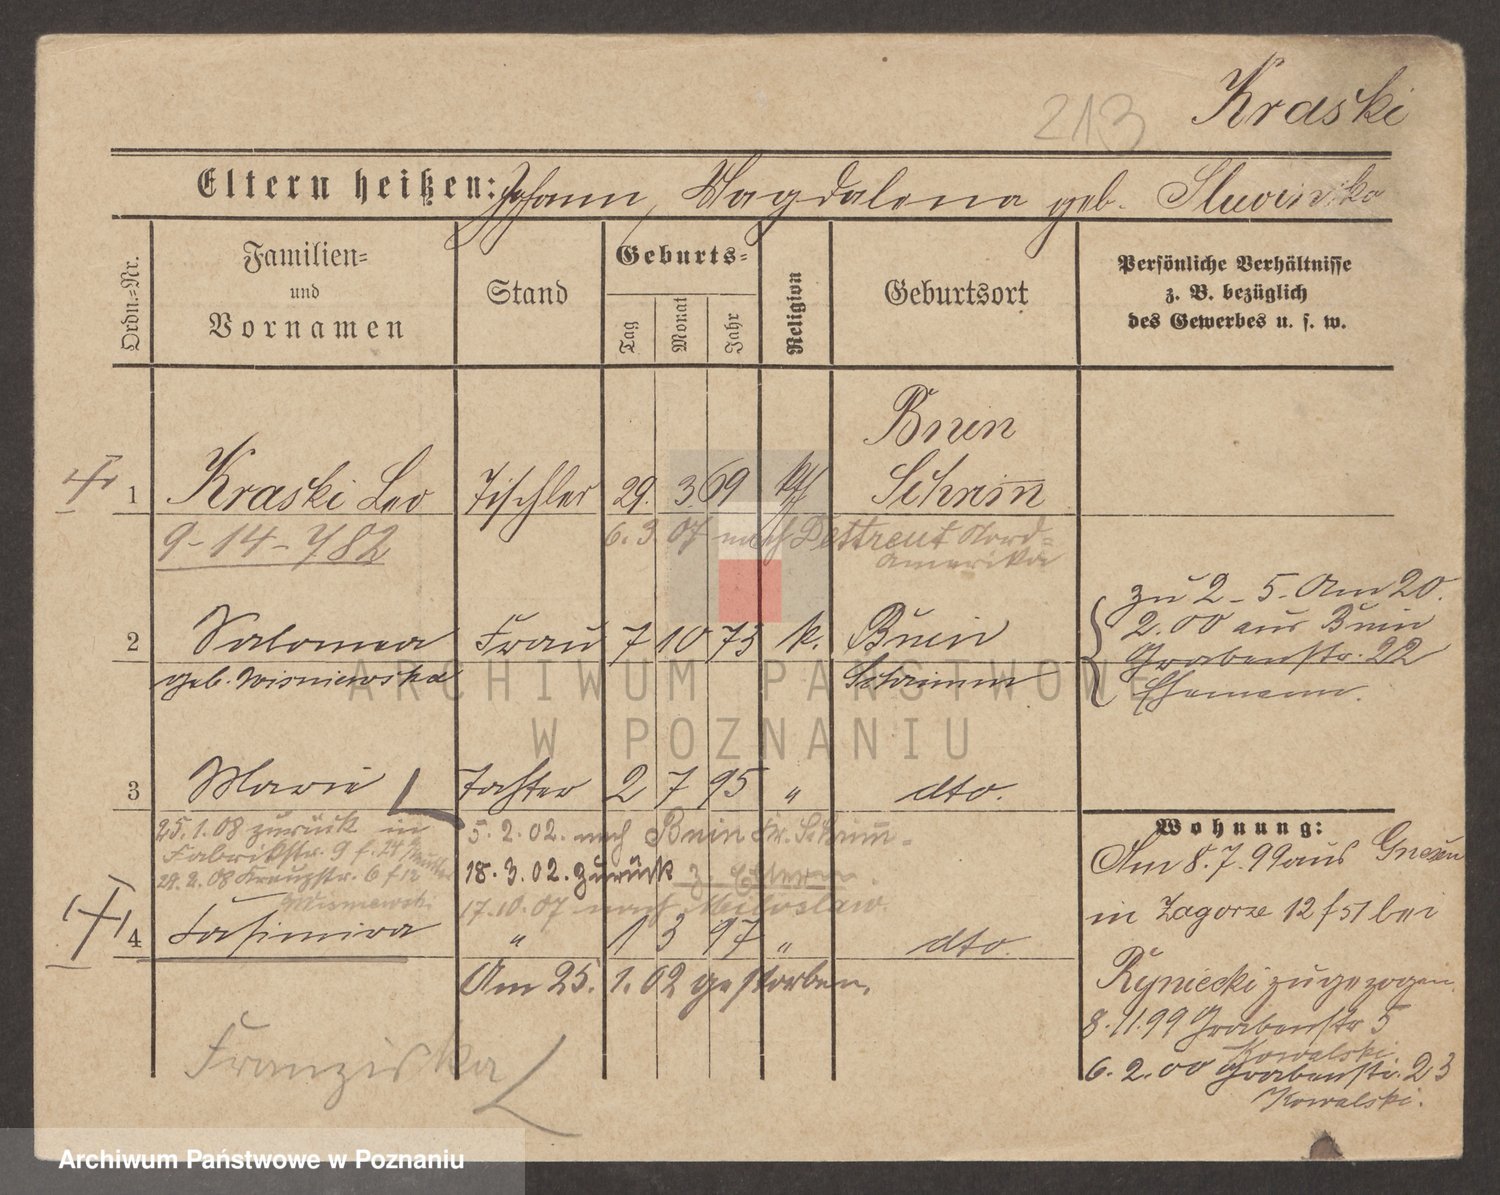 213 Kraski
Eltern heißen: Johann, Magdalena geb.
Ordn.=Nr.
Familien=
und
Vornamen
Stand
Geburts=
Tag
Monat
Jahr
Religion
Geburtsort
Persönliche Verhältnisse
z. B. bezüglich
des Gewerbes u. s. w.
Bnin
1 Kraski Leo Tischler 29. 3. 69 kth Schrim̅
9-14-782
6. 3. 07 nach Dettreut Nord=
Amerika
2 Salomea Frau 7 10 73 k. Bnin
geb. Wisniewska Schrimm
zu 2 - 5. Am 20.
2. 00 aus Bnin
Grabenstr. 22
Ehemann.
3 Marie Tochter 2 7 95 " dto.
25. 1. 08 zurück in
Fabrikstr. 9 f.
29. 2. 08 Kreuzstr. 6 f 12
Wisniewski
5. 2. 02. nach Bnin Kr. Schrim̅.
18. 3. 02. zurück z. Eltern.
17. 10. 07 nach Miloslaw.
4 Kasimira " 1 3 97 " dto.
Am 25. 1. 02 gestorben.
Franziska
Wohnung:
Am 8. 7. 99 aus Gnesen
in Zagorze 12 f 51 bei
Ryniecki zugezogen.
8. 11. 99 Grabenstr 5
Kowalski.
6. 2. 00 Grabenstr. 23
Kowalski.
ARCHIWUM PAŃSTWOWE
W POZNANIU
Archiwum Państwowe w Poznaniu